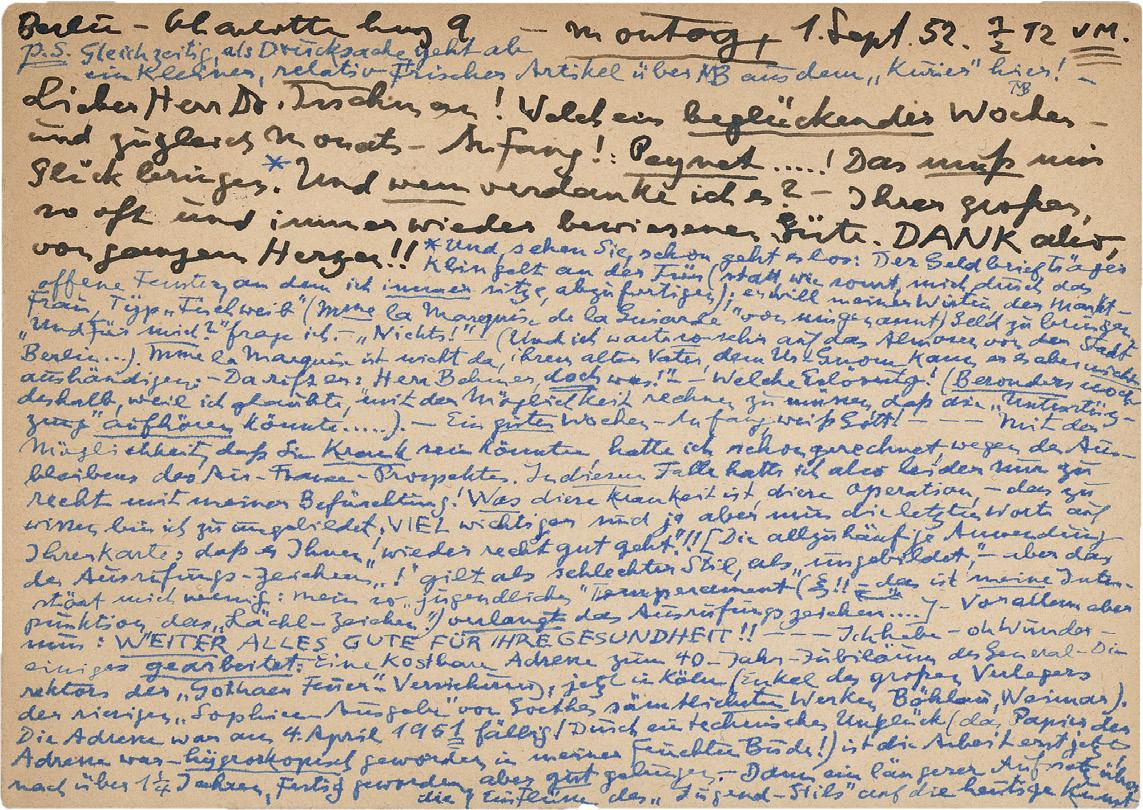 Berlin - Charlottenburg 9 - Montag, 1. Sept. 52. ½ 12 VM.
P.S. Gleichzeitig, als Drucksache geht ab
ein kleiner, relativ-frischer Artikel über MB aus dem „Kurier" hier! -
MB
Lieber Herr Dr. ! Welch ein beglückender Wochen-
und zugleich Monats-Anfang!: Peynet.....! Das muß mir
Glück bringen.* Und wem verdanke ich es? - Ihrer großen,
so oft und immer wieder bewiesenen Güte. DANK also,
von ganzem Herzen!!
*Und, sehen Sie, schon geht es los: Der Geldbriefträger
klingelt an der Tür (statt, wie sonst, mich durch das
offene Fenster, an dem ich immer sitze, abzufertigen); er will meiner Wirtin, der Markt-
frau, Typ „Fischweib" (Mme la Marquise de la " von mir genannt) Geld zu bringen
„Und für mich?" frage ich. - „Nichts!" - (Und ich warte so sehr auf das von der Stadt
Berlin...). Mme la Marquise ist nicht da, ihrem alten Vater, dem kann er es aber nicht
aushändigen. - Da ruft er: „Herr Behmer, doch was!" - Welche Erlösung! (Besonders noch
deshalb, weil ich glaubte, mit der Möglichkeit rechnen zu müssen, daß die „Unterstüt-
zung" aufhören könnte.....). - Ein guter Wochen-Anfang weiß Gott! - - - Mit der
Möglichkeit, daß Sie krank sein könnten hatte ich schon gerechnet, wegen des Aus-
bleibens des Air-France-Prospektes. In diesem Falle hatte ich also leider nur zu
recht mit meiner Befürchtung! Was diese Krankheit ist, diese Operation, - das zu
wissen bin ich zu ungebildet; VIEL wichtiger sind ja aber nun die letzten Worte auf
Ihrer Karte: „daß es Ihnen wieder recht gut geht"!!! [Die allzuhäufige Anwendung
des Ausrufungs-Zeichens „!" gilt als schlechter Stil, als „ungebildet", - aber das
stört mich wenig: mein so „jugendliches" Temperament (!! - das ist meine Inter-
punktion, das „Lächl-Zeichen") verlangt das Ausrufungszeichen....] - Vor allem aber
nun: WEITER ALLES GUTE FÜR IHRE GESUNDHEIT!! - - - Ich habe - oh Wunder -
einiges gearbeitet: Eine kostbare Adresse zum 40-Jahr-Jubiläum des General-Di-
rektors der „Gothaer Feuer"-Versicherung, jetzt in Köln (Enkel des großen Verlegers
der riesigen „Sophien Ausgabe" von Goethes sämtlichsten Werken, Böhlau, Weimar).
Die Adresse war am 4. April 1951 fällig! Durch ein technisches Unglück (das Papier der
Adresse war hygroskopisch geworden in meiner feuchten Bude!) ist die Arbeit erst jetzt
nach über 1¼ Jahren, fertig geworden, aber gut gelungen. - Dann ein längerer Aufsatz über
die Einflüsse des „Jugend-Stils" auf die heutige Kunst